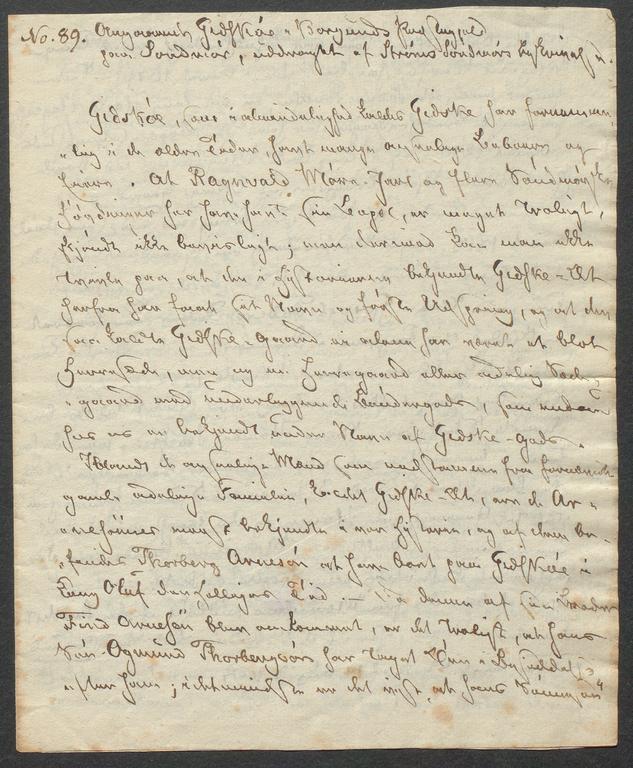 No. 89. Angaaende Gidskøe i Borgunds Præstegjeld
paa Søndmør, uddraget af Strøms Søndmørs Beskrivelse.
Gidskøe, som i almindelighed kaldes Gidske har fornemme-
-lig i de ældre Tider havt mange anseelige Beboere og
Eiere. At Ragnvald Møre-Jarl og flere Søndmørske
har havt sin Bopæl, er meget troligt,
skjøndt ikke beviisligt; men derimod kan man ikke
tvivle paa, at den i Historien bekjendte Gidske-Æt
herfra har faaet sit Navn og første Udspring, og at den
saa kaldte Gidske-gaard ei alene har været et blot
Herresæde, men og en Herregaard eller adelig Sæde-
-gaard med underliggende Bøndergods, som endnu
hos os er bekjendt under Navn af Gidske-gods.
Iblandt de anseelige Mænd som nedstamme fra formeldte
gamle adelige Familie, kaldet Gidske-Æt, ere de Ar-
-nesønner mest bekjendte i vor Historie, og af dem be-
-fandtes Thorberg Arnesøn at have boet paa Gidskøe i
Kong Oluf den helliges Tiid. — Da denne af sin Broder
Find Arnesøn blev omkommet, er det troligt, at hans
Søn Ogmund Thorbergsøn har taget Øen i Besiddelse
efter ham; idetmindste er det vist, at hans Sønnesøn